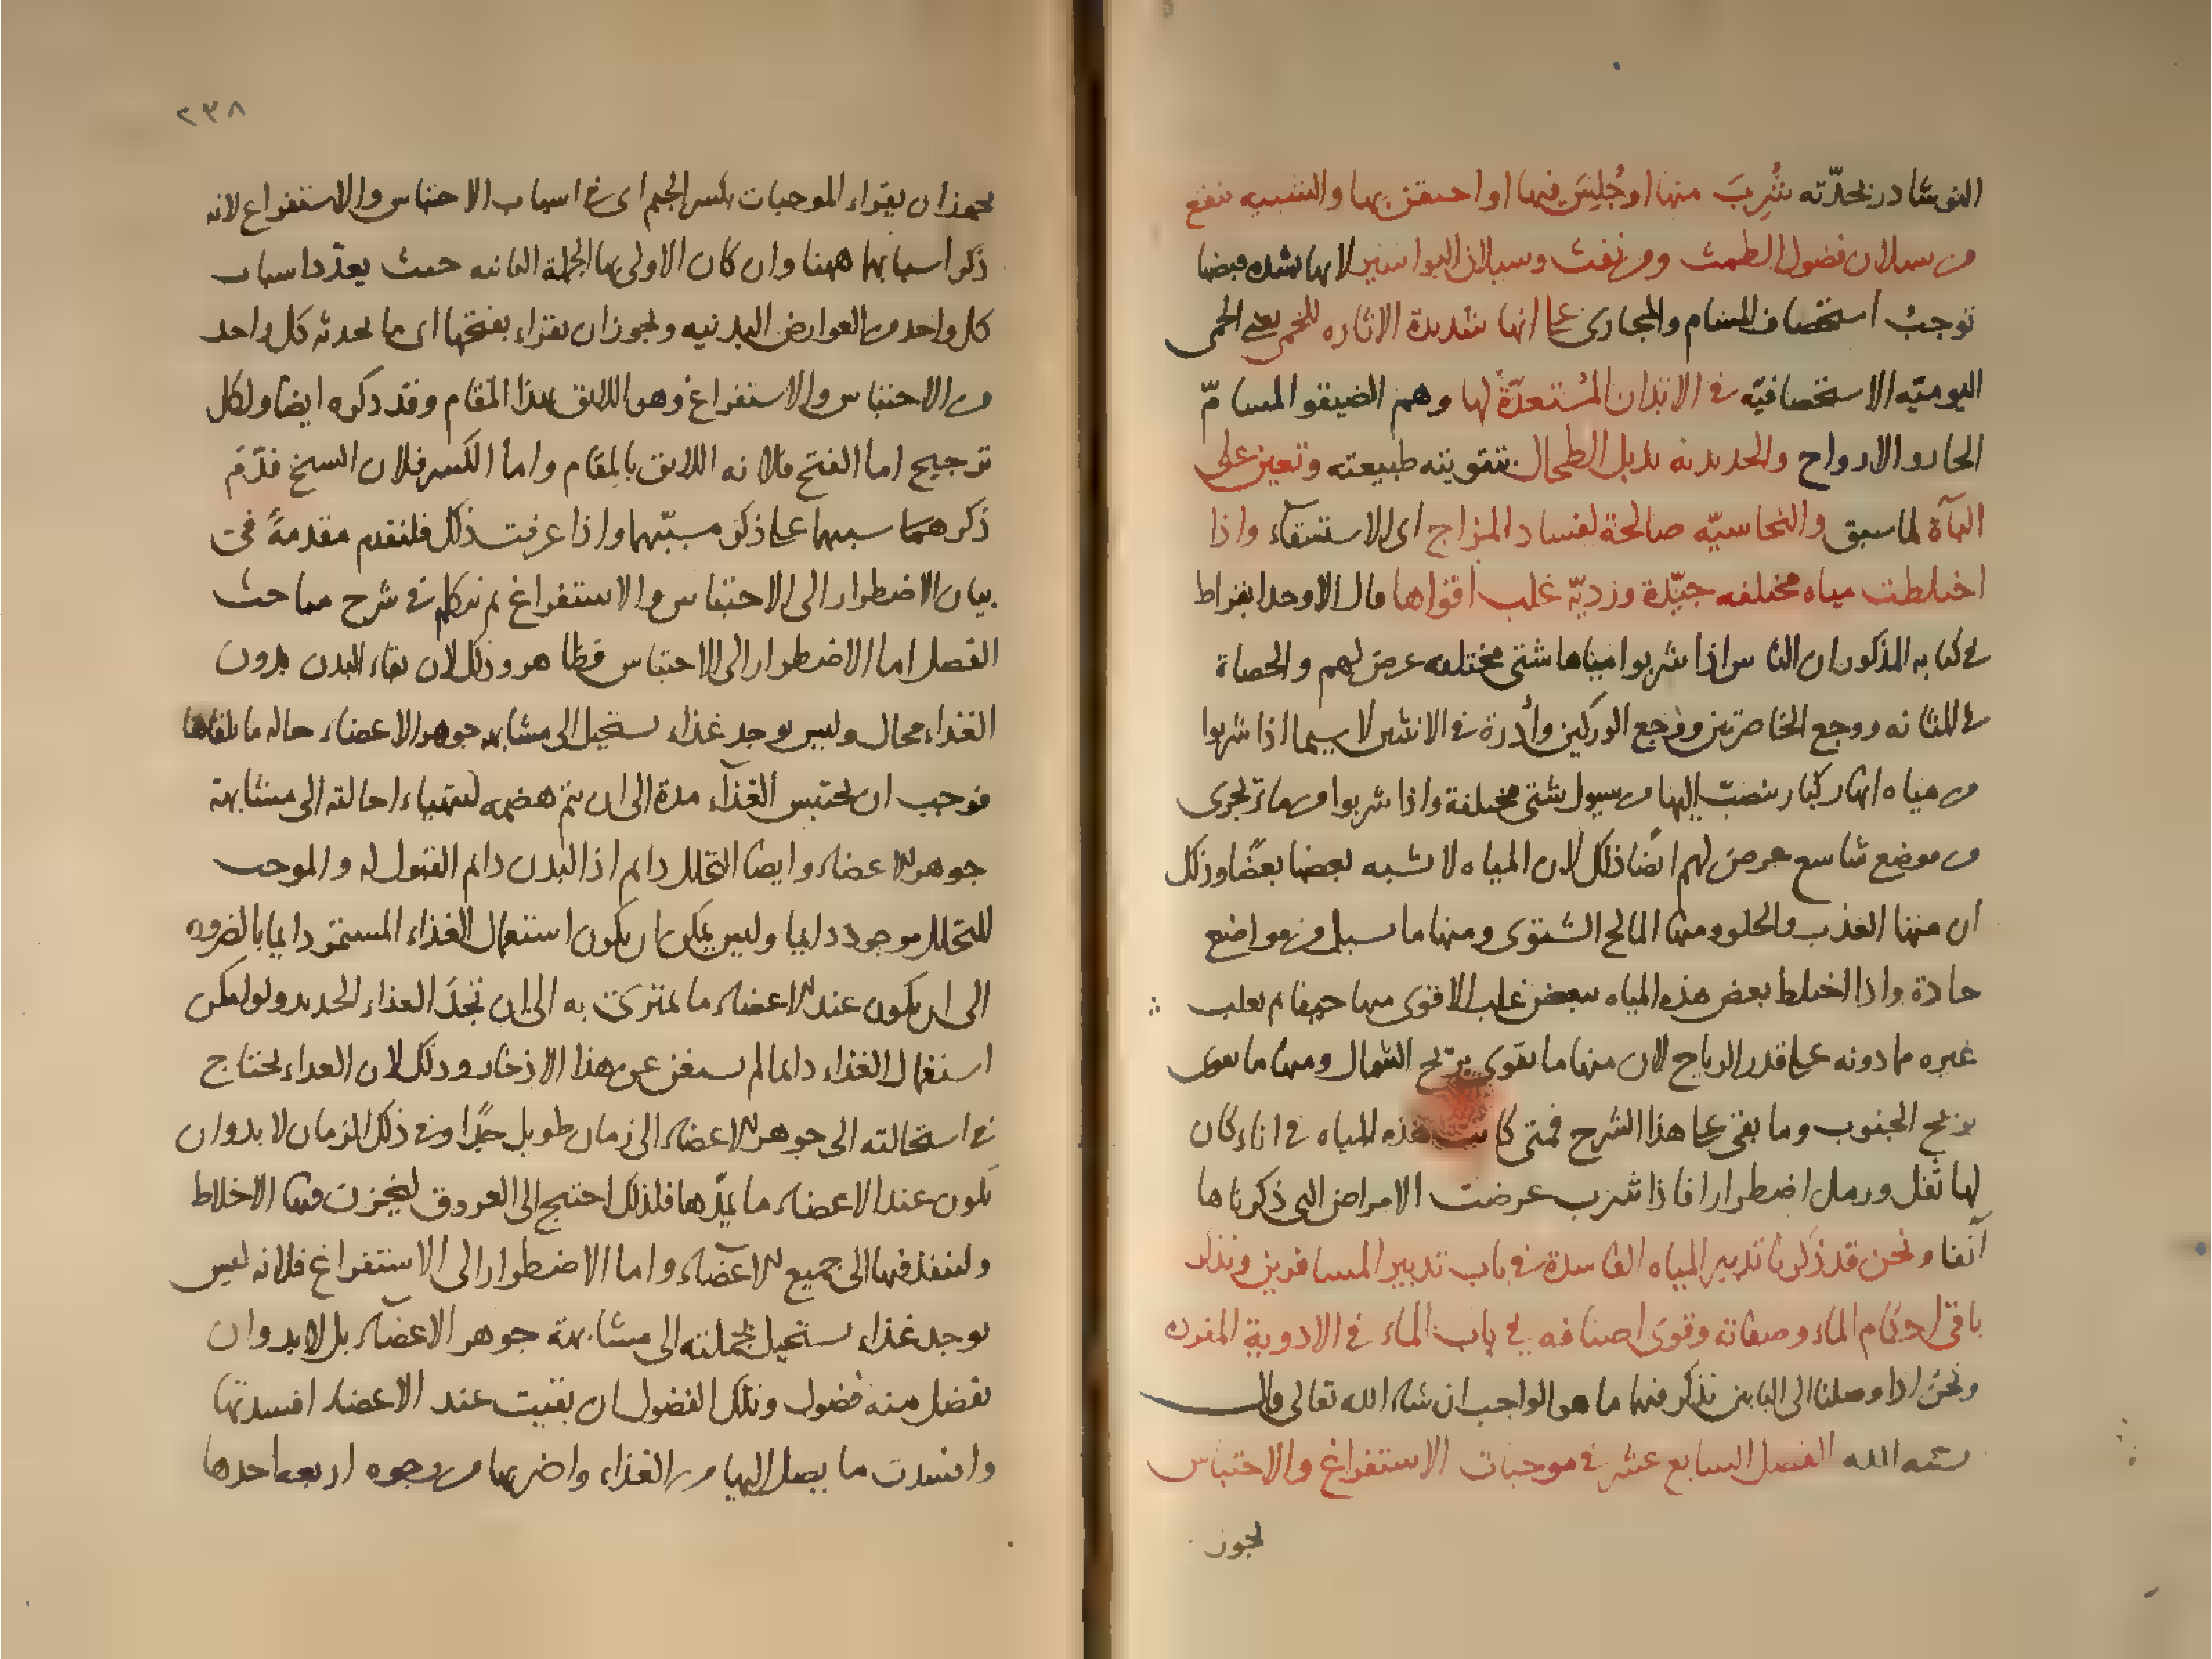 النوشادر بحدّته شُرِبَ منها او جُلِسَ فيها او احتقن بها والشبيه تنفع
من سيلان فضول الطمث ومن نفث وسيلان البواسير لانها بشده قبضها
توجب استحصاف المسام والمجارى على انها شديدة الاثاره للحمى يعنى الحمى
اليوميّه الاستحصافيّه فى الابدان المُستعدّة لها وهم الضيقوا المسامّ
الحاروا الارواح والحديديه يذبل الطحال بتقويته طبيعته وتعين على
الباآة لما سبق والنحاسيّه صالحة لفساد المزاج اى الاستسقاء واذا
اختلطت مياه مختلفه جيّدة ورديّه غلب اقواها قال الاوحد ابقراط
فى كتابه المذكور ان الناس اذا شربوا مياها شتى مختلفه عرض لهم الحصاة
فى المثانه ووجع الخاصرتين ووجع الوركين وأدرة فى الانثيين لا سيما اذا شربوا
من مياه انهار كبار ينصبّ اليها من سيول شتى مختلفة واذا شربوا من ماء تجرى
من موضع شاسع عرض لهم ايضًا ذلك لان المياه لا تشبه بعضها بعضًا وذلك
ان منها العذب والحلو ومنها المالح الشبوى ومنها ما يسيل من مواضع
حادة واذا اختلط بعض هذه المياه ببعض غلب الاقوى منها حيفا ثم يغلب
غيره مما دونه على قدر الرياح لان منها ما يقوى بريح الشمال ومنها ما يقوى
بريح الجنوب وما بقى على هذا الشرح فمتى كانت هذه المياه فى اناء كان
لها ثفل ورمل اضطرارا فاذا شرب عرضت الامراض التى ذكرناها
آنفا ونحن قد ذكرنا تدبير المياه الفاسدة فى باب تدبير المسافرين ونذكر
باقى احكام الماء وصفاته وقوى اصنافه فى باب الماء فى الادوية المفرده
ونحن اذا وصلنا الى البابين نذكر فيها ما هو الواجب ان شاء الله تعالى قال
رحمه الله الفصل السابع عشر فى موجبات الاستفراغ والاحتباس
يجوز
٢٣٨
يجوز ان يقراء الموجبات بكسر الجيم اى فى اسباب الاحتباس والاستفراغ لانه
ذكر اسبابها ههنا وان كان الاولى بها الجملة الثانيه حيث يعدّد اسباب
كل واحد من العوارض البدنيه ويجوز ان يقراء بفتحها اى ما يحدثه كل واحد
من الاحتباس والاستفراغ وهو اللايق بهذا المقام وقد ذكره ايضا ولكل
ترجيح اما الفتح فلانه اللايق بالمقام واما الكسر فلان الشيخ قدّم
ذكر هما سببهما على ذكر مسبّبهما واذا عرفت ذلك فلنقدم مقدمةً فى
بيان الاضطرار الى الاحتباس والاستفراغ ثم نتكلم فى شرح مباحث
الفصل اما الاضطرار الى الاحتباس فظاهر وذلك لان بقاء البدن بدون
الغذاء محال وليس يوجد غذاء يستحيل الى مشابهه جوهر الاعضاء حاله ما يلقاها
فوجب ان يحتبس الغذآء مدة الى ان يتم هضمه ليتهياء احالته الى مشابهة
جوهر الاعضاء وايضا التحلل دايم اذ البدن دايم القبول له والموجب
للتحلل موجود دايما وليس يمكن ان يكون استعمال الغذاء المستمر دايما بالضروره
الى ان يكون عند الاعضاء ما تمترى به الى ان تجدَ الغذاء الجديد ولو امكن
استعمال الغذاء دائما لم يستغن عن هذا الاذخار وذلك لان الغذاء يحتاج
فى استحالته الى جوهر الاعضاء الى زمان طويل جدًا وفى ذلك الزمان لا بد وان
يكون عند الاعضاء ما يمدّها فلذلك احتيج الى العروق ليخزن فيها الاخلاط
ولتنفذ فيها الى جميع الاعضآء واما الاضطرار الى الاستفراغ فلانه ليس
يوجد غذاء يستحيل بجملته الى مشابهة جوهر الاعضآء بل لا بد وان
يفضل منه فضول وتلك الفضول ان بقيت عند الاعضاء افسدتها
وافسدت ما يصل اليها من الغذاء واضر بها من وجوه اربعه احدها